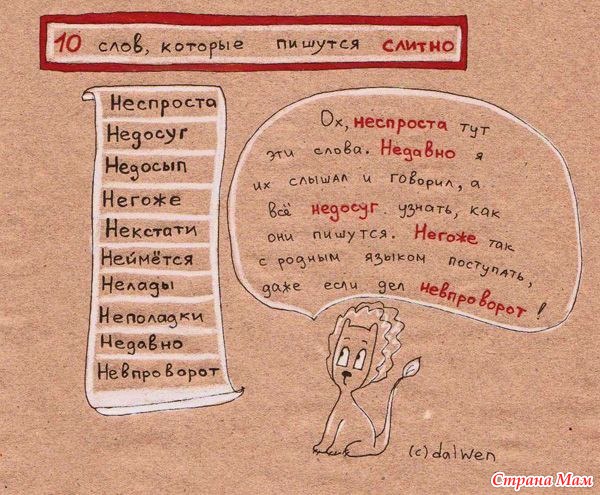 10 слов, которые пишутся слитно
Неспроста
Недосуг
Недосып
Негоже
Некстати
Неймётся
Нелады
Неполадки
Недавно
Невпроворот
Ох, неспроста тут
эти слова. Недавно я
их слышал и говорил, а
всё недосуг узнать, как
они пишутся. Негоже так
с родным языком поступать,
даже если дел невпроворот!
(c) dalwen
Страна Мам